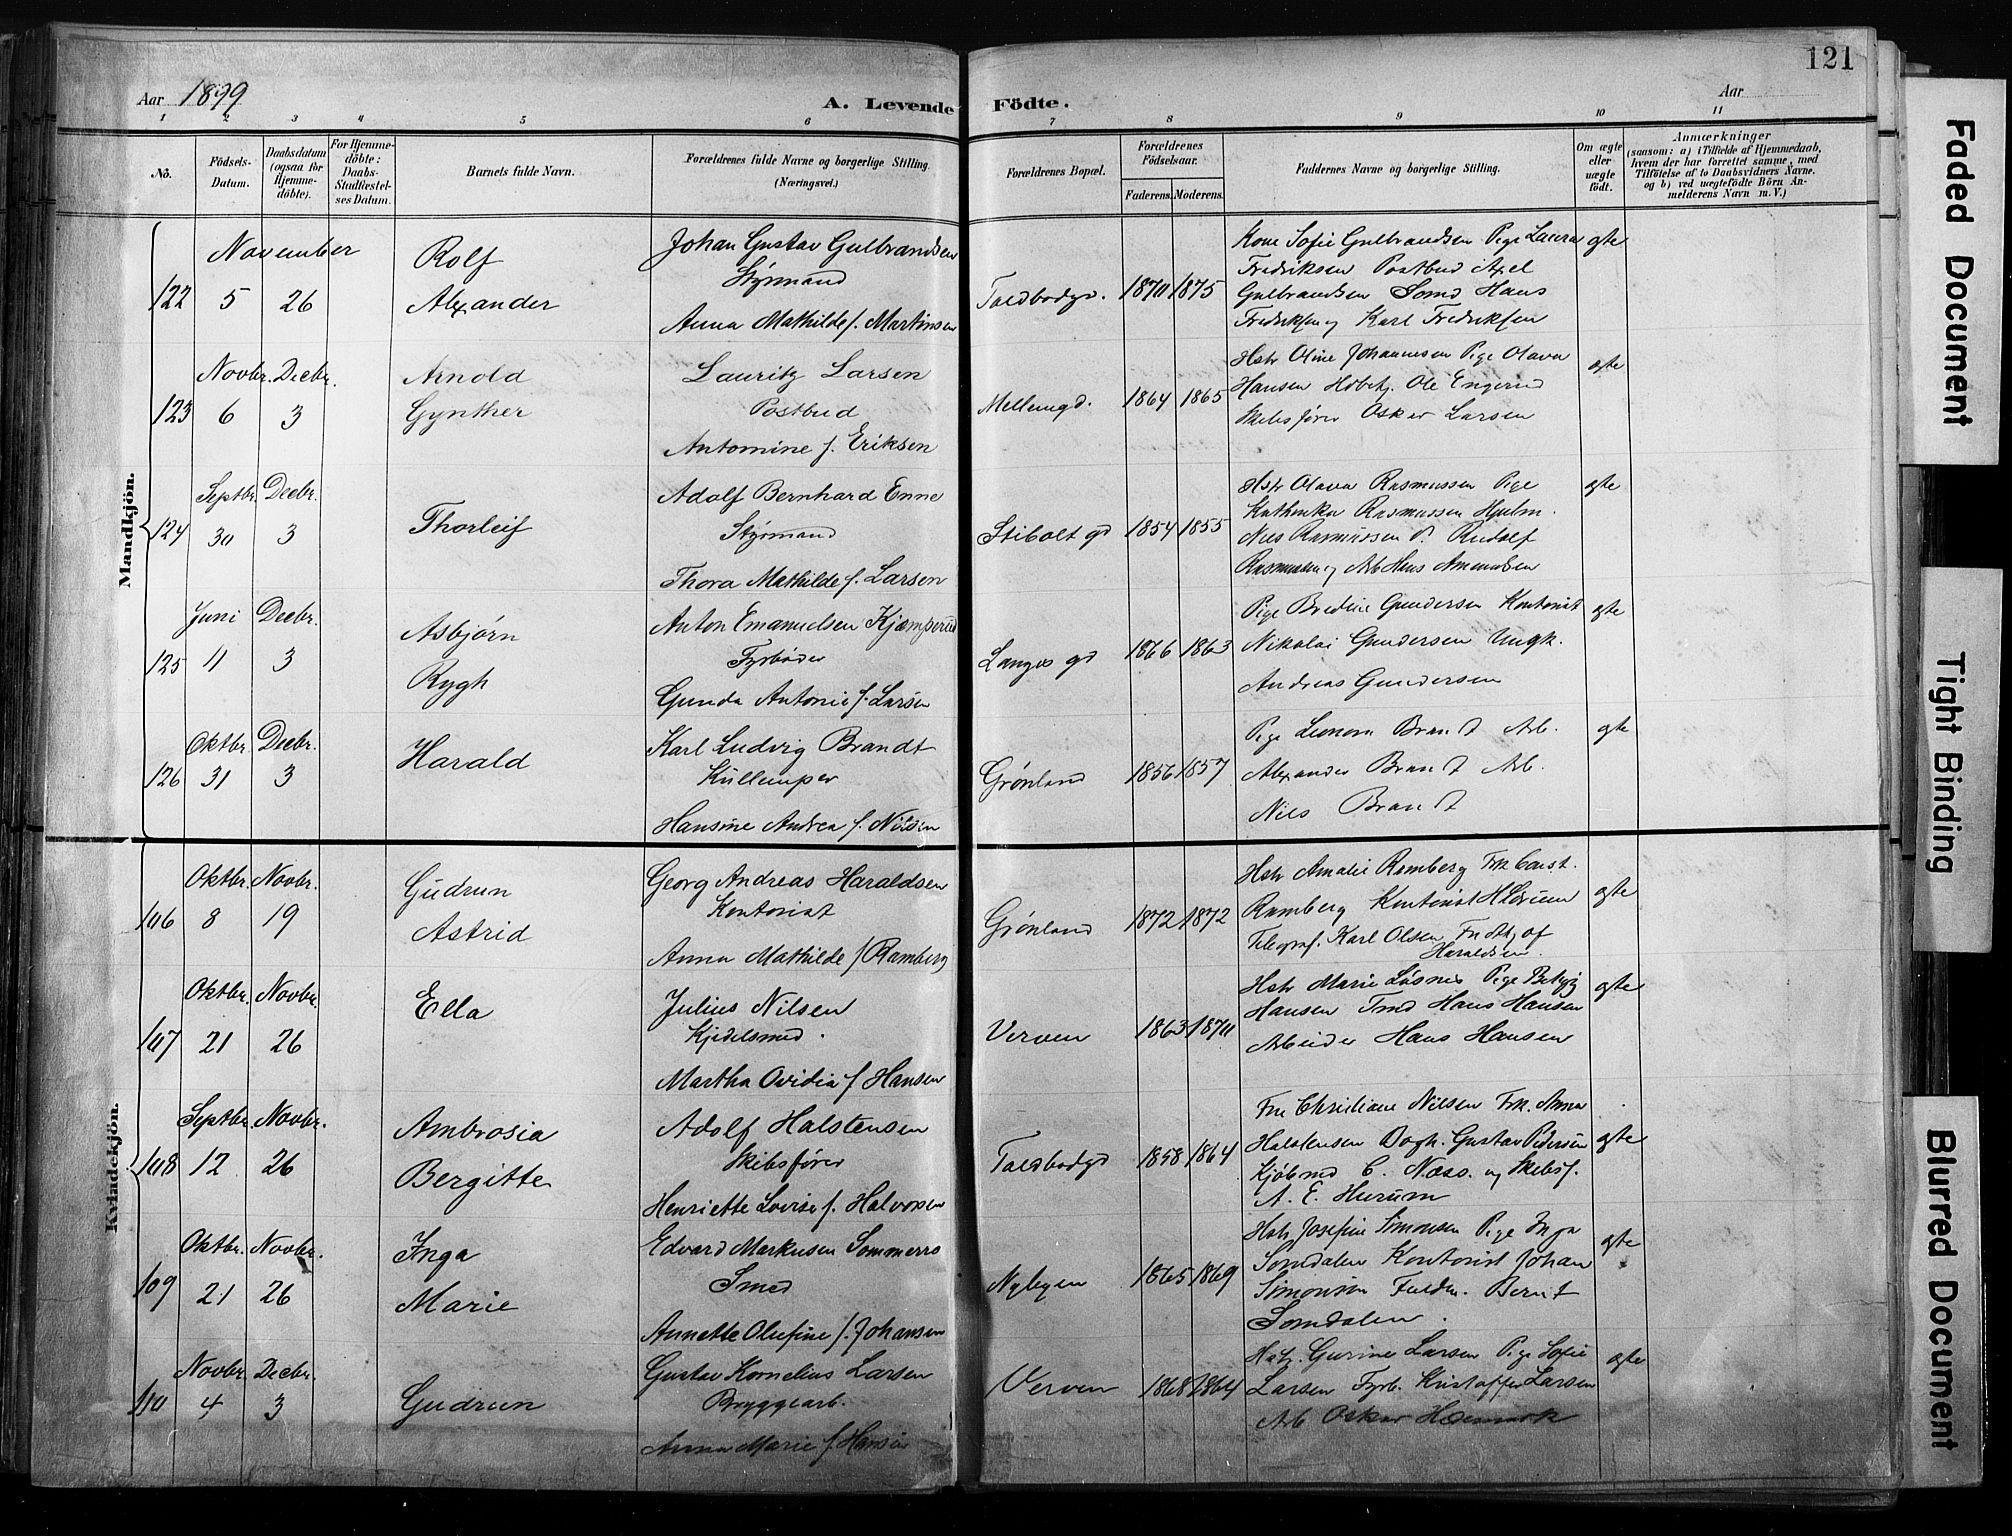 121
Aar 1899
A. Levende Födte.
Aar
1 2 3 4 5 6 7 8 9 10 11
No.
Födsels-Datum.
Daabsdatum (ogsaa for Hjemme-döbte).
For Hjemme-döbte: Daabs-Stadfæstel-ses Datum.
Barnets fulde Navn.
Forældrenes fulde Navne og borgerlige Stilling.
(Næringsvei.)
Forældrenes Bopæl.
Forældrenes Födselsaar.
Faderens. Moderens.
Faddernes Navne og borgerlige Stilling.
Om ægte eller uægte født.
Anmærkninger
(saasom: a) i Tilfælde af Hjemmedaab, hvem der har forrettet samme, med Tilföielse af to Daabsvidners Navne. og b) ved uægtefödte Börn An-melderens Navn m. V.)
Mandkjön.
122
November
5 26
Rolf
Alexander
Johan Gustav Gulbrandsen
Styrmand
Anna Mathilde f. Martinsen
Toldbodgd.
1870 1875
Kone Sofie Gulbrandsen Pige Laura
Fredriksen Postbud Axel
Gulbrandsen Sømd Hans
Fredriksen og Karl Fredriksen
ægte
123
Novbr. Decbr.
6 3
Arnold
Gynther
Lauritz Larsen
Postbud
Antomine f. Eriksen
Mellemgd.
1864 1865
Hstr Oline Johannesen Pige Olava
Hansen Ole Engerud
Skibsfører Oskar Larsen
ægte
124
Septbr. Decbr.
30 3
Thorleif
Adolf Bernhard Enne
Styrmand
Thora Mathilde f. Larsen
Stibolt gd
1854 1855
Hstr Olava Rasmussen Pige
Kathinka Rasmussen Hjulm.
Nils Rasmussen P. Rudolf
Rasmussen og Arb Hans Amundsen
ægte
125
Juni Decbr.
11 3
Asbjørn
Rygh
Anton Emanuelsen Kjæmperud
Fyrbøder
Gunda Antonie f. Larsen
Langes gd
1866 1863
Pige Bredine Gundersen Kontorist
Nikolai Gundersen Ungk.
Andreas Gundersen
ægte
126
Oktbr. Decbr.
31 3
Harald
Karl Ludvig Brandt
Kullemper
Hansine Andrea f. Nilsen
Grønland
1856 1857
Pige Leonora Brandt Arb.
Alexander Brandt Arb.
Nils Brandt
ægte
Kvindekjön.
106
Oktbr. Novbr.
8 19
Gudrun
Astrid
Georg Andreas Haraldsen
Kontorist
Anna Mathilde f Ramberg
Grønland
1872 1872
Hstr Amalie Ramberg Frk Const.
Ramberg Kontorist H Lørum
Telegraf. Karl Olsen
Haraldsen.
ægte
107
Oktbr. Novbr.
21 26
Ella
Julius Nilsen
Kjedelsmed.
Martha Ovidia f Hansen
Verven
1863 1870
Hstr Marie Løsnes Pige
Hansen Tmd Hans Hansen
Arbeider Hans Hansen
ægte
108
Septbr. Novbr.
12 26
Ambrosia
Bergitte
Adolf Halstensen
Skibsfører
Henriette Lovise f. Halvorsen
Toldbodgd
1858 1864
Fru Christiane Nilsen Frk. Anna
Halstensen Bogh. Gustav Pedersen
Kjøbmd C. Næss. og Skibsf.
A. E. Hurum
ægte
109
Oktbr. Novbr.
21 26
Inga
Marie
Edvard Markusen Sommerro
Smed
Annette Olufine f. Johansen
Nybyen
1865 1869
Hstr Josefine Simonsen Pige Inga
Somdalen Kontorist Johan
Simonsen Fuldm. Bernt
Somdalen.
ægte
110
Novbr. Decbr.
4 3
Gudrun
Gustav Kornelius Larsen
Bryggearb.
Anna Marie f. Hansen
Verven
1868 1864
Hstr. Gurine Larsen Pige Sofie
Larsen Fyrb. Kristoffer Larsen
Arb Oskar
ægte
Faded Document
Tight Binding
Blurred Document